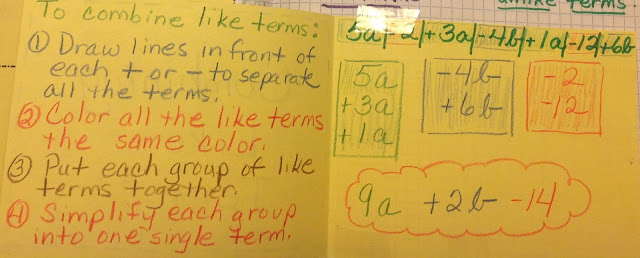 To combine like terms:
① Draw lines in front of
each + or - to separate
all the terms.
② Color all the like terms
the same color.
③ Put each group of like
terms together.
④ Simplify each group
into one single term.
unlike terms
5a|-2|+3a|-4b|+1a|-12|+6b
5a
+3a
+1a
-4b
+6b
-2
-12
9a +2b -14